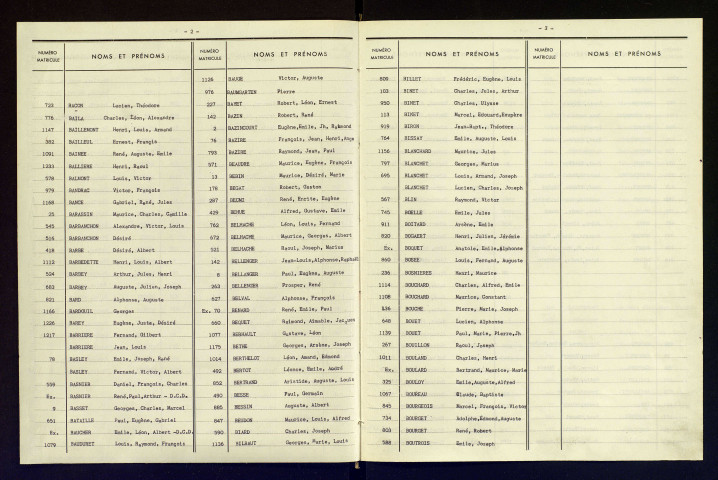 - 2 -
NUMÉRO MATRICULE NOMS ET PRÉNOMS
723 BACON Lucien, Théodore
776 BAILA Charles, Édon, Alexandre
1147 BAILLEMONT Henri, Louis, Amand
382 BAILLEUL Ernest, François
1091 BAINEE René, Auguste, Emile
1233 BALLIERE Henri, Marcel
578 BALMONT Louis, Victor
979 BANDRAC Victor, François
1168 BANCE Gabriel, René, Jules
25 BARASSIN Maurice, Charles, Camille
545 BARBANCHON Alexandre, Victor, Louis
516 BARBANCHON Désiré
418 BARBE Désiré, Albert
1112 BARBEDETTE Henri, Louis, Albert
524 BARBEY Arthur, Jules, Henri
683 BARBEY Auguste, Julien, Joseph
821 BARD Alphonse, Auguste
1166 BARDOUIL Georges
1226 BAREY Eugène, Juste, Désiré
1217 BARRIERE Fernand, Gilbert
BARRIERE Jean, Louis
78 BASLEY Emile, Joseph, René
BASLEY Fernand, Victor, Albert
559 BASNIER Daniel, François, Charles
Ex. BASNIER René, Paul, Arthur - D.C.D.
9 BASSET Georges, Charles, Marcel
651 BATAILLE Paul, Eugène, Gabriel
Ex. BAUCHEN Emile, Léon, Albert -D.C.D.
1079 BAUDUNET Louis, Raymond, François
NUMÉRO MATRICULE NOMS ET PRÉNOMS
1126 BAUGE Victor, Auguste
976 BAUMGARTEN Pierre
227 BAVET Robert, Léon, Ernest
142 BAZIN Robert, René
3 BAZINCOURT Eugène, Emile, Jh, Raymond
76 BAZIRE François, Jean, Henri, Ange
793 BAZIRE Raymond, Jean, Paul
571 BEAUDRE Maurice, Eugène, François
13 BEBIN Maurice, Désiré, Marie
176 BEGAT Robert, Gaston
287 BEUME René, Errite, Eugène
429 BEHUE Alfred, Gustave, Emile
762 BELHACHE Léon, Louis, Fernand
672 BELHACHE Maurice, Georges, Albert
531 BELHACHE Raoul, Joseph, Marius
142 BELLENGER Jean-Louis, Alphonse, Raphaël
8 BELLANGER Paul, Eugène, Auguste
263 BELLENGER Prosper, René
627 BELVAL Alphonse, François
Ex. 70 BENARD René, Emile, Paul
660 BEQUET Raymond, Aimable, Jacques
1077 BERHAULT Gustave, Léon
1175 BETHE Georges, Arsène, Joseph
1014 BERTHELOT Léon, Amand, Edmond
492 BERTOT Léonce, Emile, André
852 BERTRAND Aristide, Auguste, Louis
490 BESSE Paul, Germain
885 BESSIN Auguste, Albert
647 BESSON Maurice, Louis, Alfred
590 BIARD Charles, Joseph
1136 BILHAUT Georges, Marie, Louis
- 3 -
NUMÉRO MATRICULE NOMS ET PRÉNOMS
809 BILLET Frédéric, Eugène, Louis
103 BINET Charles, Jules, Arthur
950 BINET Charles, Ulysse
113 BINET Marcel, Edouard, Exupère
919 BIRON Jean-Bapt., Théodore
764 BISSAY Emile, Auguste, Louis
1156 BLANCHARD Maurice, Jules
797 BLANCHET Georges, Marius
695 BLANCHET Louis, Armand, Joseph
BLANCHET Lucien, Charles, Joseph
567 BLIN Raymond, Victor
745 BOELLE Emile, Jules
911 BOITARD Arsène, Emile
820 BOGAERT Henri, Julien, Jérémie
Ex. BOQUET Anatole, Emile, Alphonse
860 BOSEE Louis, Fernand, Auguste
236 BOSNIERES Henri, Maurice
1114 BOUCHARD Charles, Alfred, Emile
1108 BOUCHARD Maurice, Constant
836 BOUCHE Pierre, Marie, Joseph
648 BOUET Lucien, Alphonse
1139 BOUET Paul, Marie, Pierre, Jh
267 BOUILLON Raoul, Joseph
1011 BOULAND Charles, Henri
Ex. BOULARD Bertrand, Maurice, Marie
925 BOULOY Emile, Auguste, Alfred
1067 BOUREAU Claude, Baptiste
845 BOURGEOIS Marcel, François, Victor
734 BOURGET Adolphe, Edmond, Auguste
803 BOURGET René, Robert
588 BOUTROIS Emile, Joseph
NUMÉRO MATRICULE NOMS ET PRÉNOMS